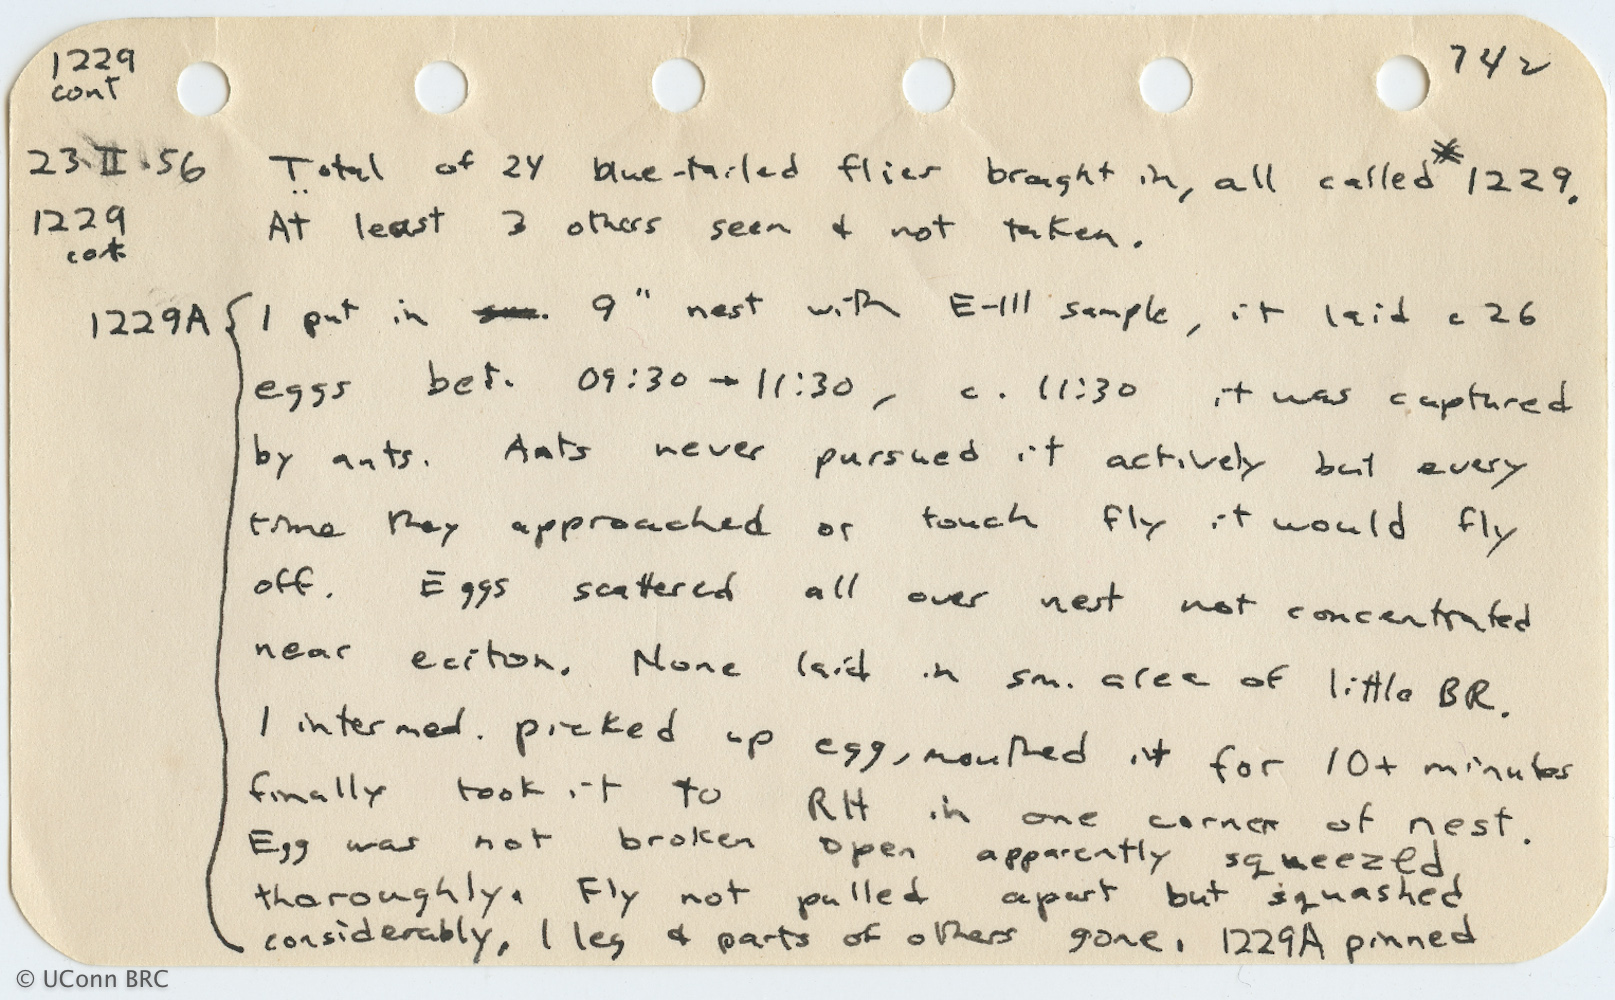 1229
cont
742
23.II.56 Total of 24 blue-tailed flies brought in, all called * 1229.
1229 At least 3 others seen & not taken.
cont
1229A { 1 put in 9" nest with E-111 sample, it laid c 26
eggs bet. 09:30 → 11:30, c. 11:30 it was captured
by ants. Ants never pursued it actively but every
time they approached or touch fly it would fly
off. Eggs scattered all over nest not concentrated
near eciton. None laid in sm. area of little BR.
1 intermed. picked up egg, mouthed it for 10+ minutes
finally took it to RH in one corner of nest.
Egg was not broken open apparently squeezed
thoroughly. Fly not pulled apart but squashed
considerably, 1 leg & parts of others gone. 1229A pinned
© UConn BRC